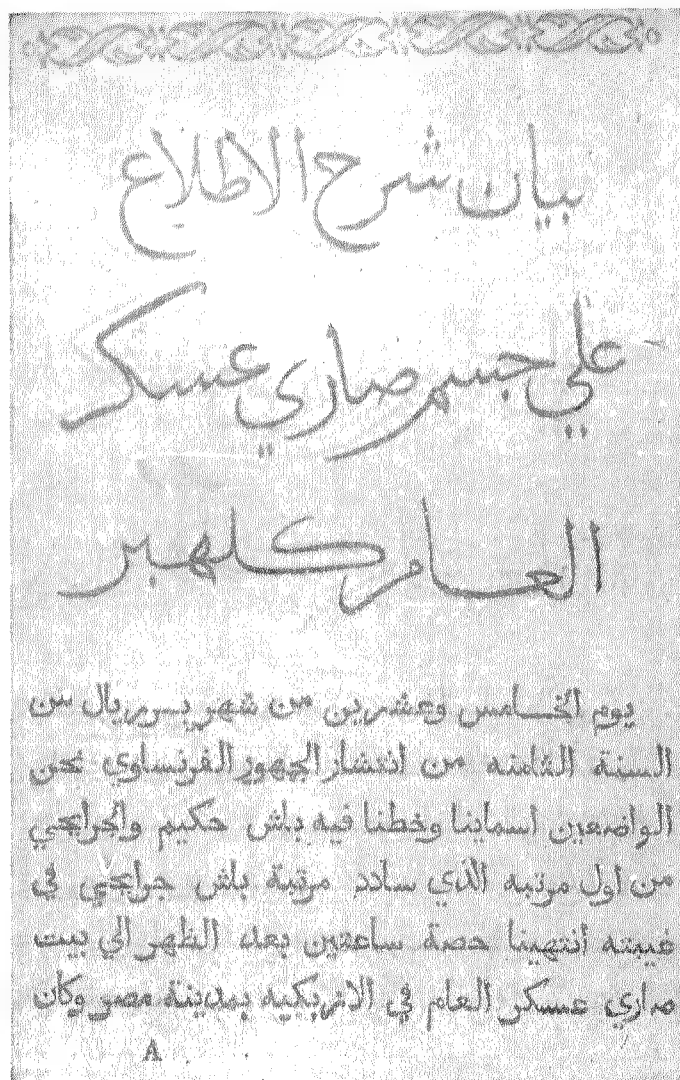 بيان شرح الاطلاع
علي جسم صاري عسكر
العام كلهبر
يوم الخامس وعشرين من شهر برريال من
السنة الثامنه من انتشار الجمهور الفرنساوي نحن
الواضعين اسماينا وخطنا فيه باش حكيم والجرايحي
من اول مرتبه الذي سادد مرتبة باش جرايحي في
غيبته انتهينا حصة ساعتين بعد الظهر الي بيت
صاري عسكر العام في الازبكيه بمدينة مصر وكان
A